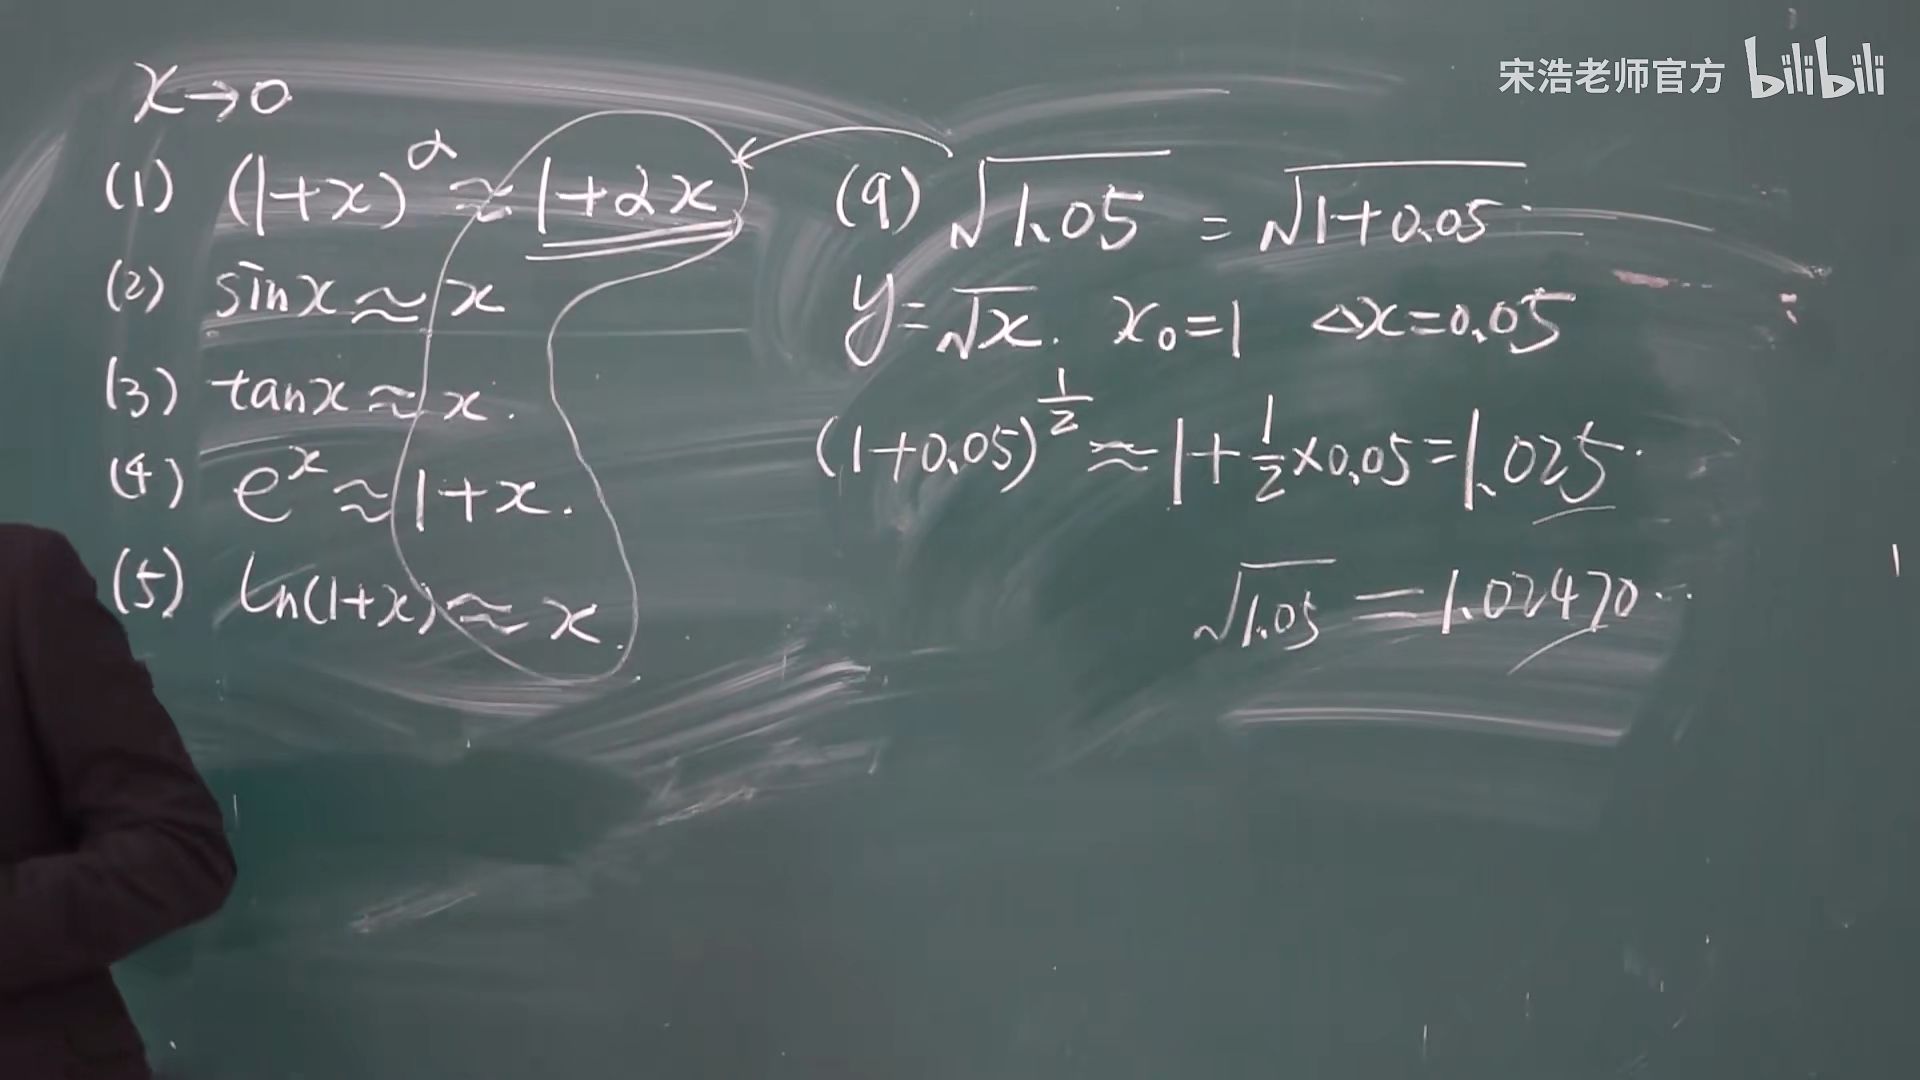 宋浩老师官方 bilibili
x→0
(1) (1+x)^α ≈ 1+αx
(2) sinx ≈ x
(3) tanx ≈ x.
(4) e^x ≈ 1+x.
(5) ln(1+x) ≈ x.
(9) √1.05 = √1+0.05
y=√x. x₀=1 △x=0.05
(1+0.05)^½ ≈ 1+½×0.05=1.025.
√1.05 = 1.02470...